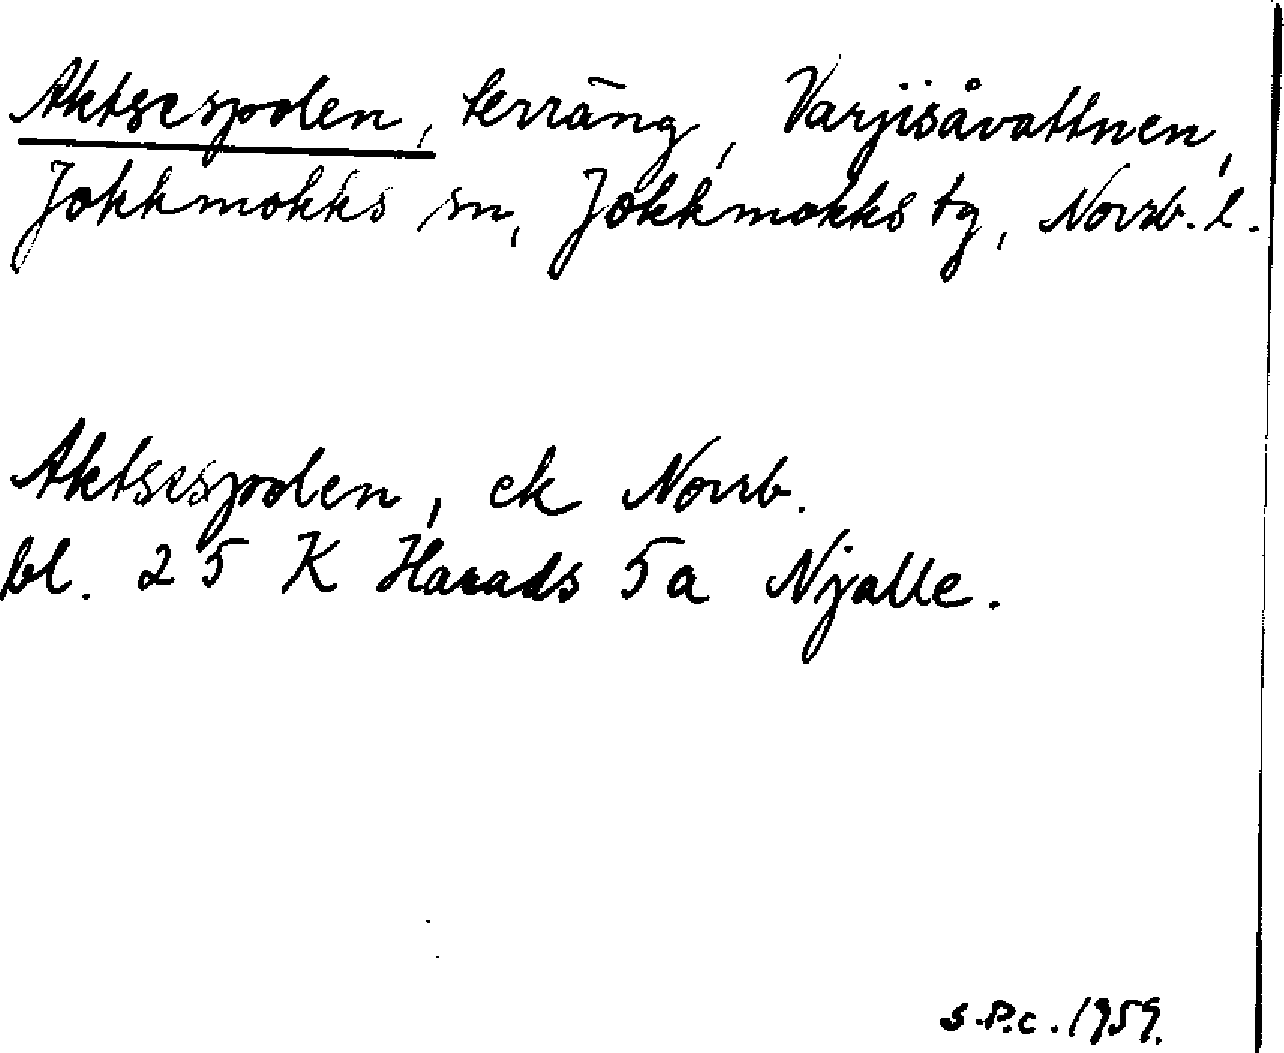 Aktsespolen, terräng, Varjisåvattnen,
Jokkmokks sn, Jokkmokks tg, Norrb. l.
Aktsespolen, ek Norrb.
bl. 25 K Harads 5a Njalle.
S.P.C. 1959.